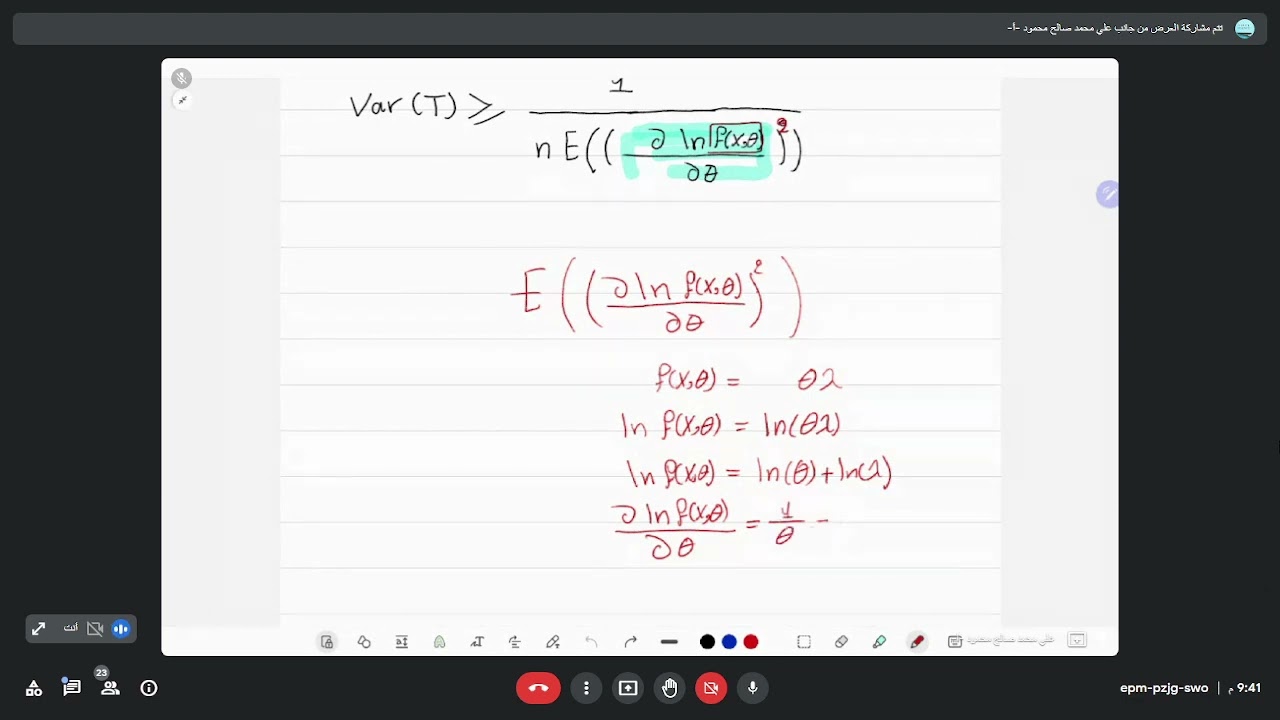 تتم مشاركة العرض من جانب علي محمد صالح محمود -أ-
Var(T) ≥ 1 / (n E((∂ ln f(x,θ) / ∂θ)²))
E((∂ ln f(x,θ) / ∂θ)²)
f(x,θ) = θλ
ln f(x,θ) = ln(θλ)
ln f(x,θ) = ln(θ) + ln(λ)
∂ ln f(x,θ) / ∂θ = 1/θ -
أنت
علي محمد صالح محمود
23
epm-pzjg-swo | 9:41 م